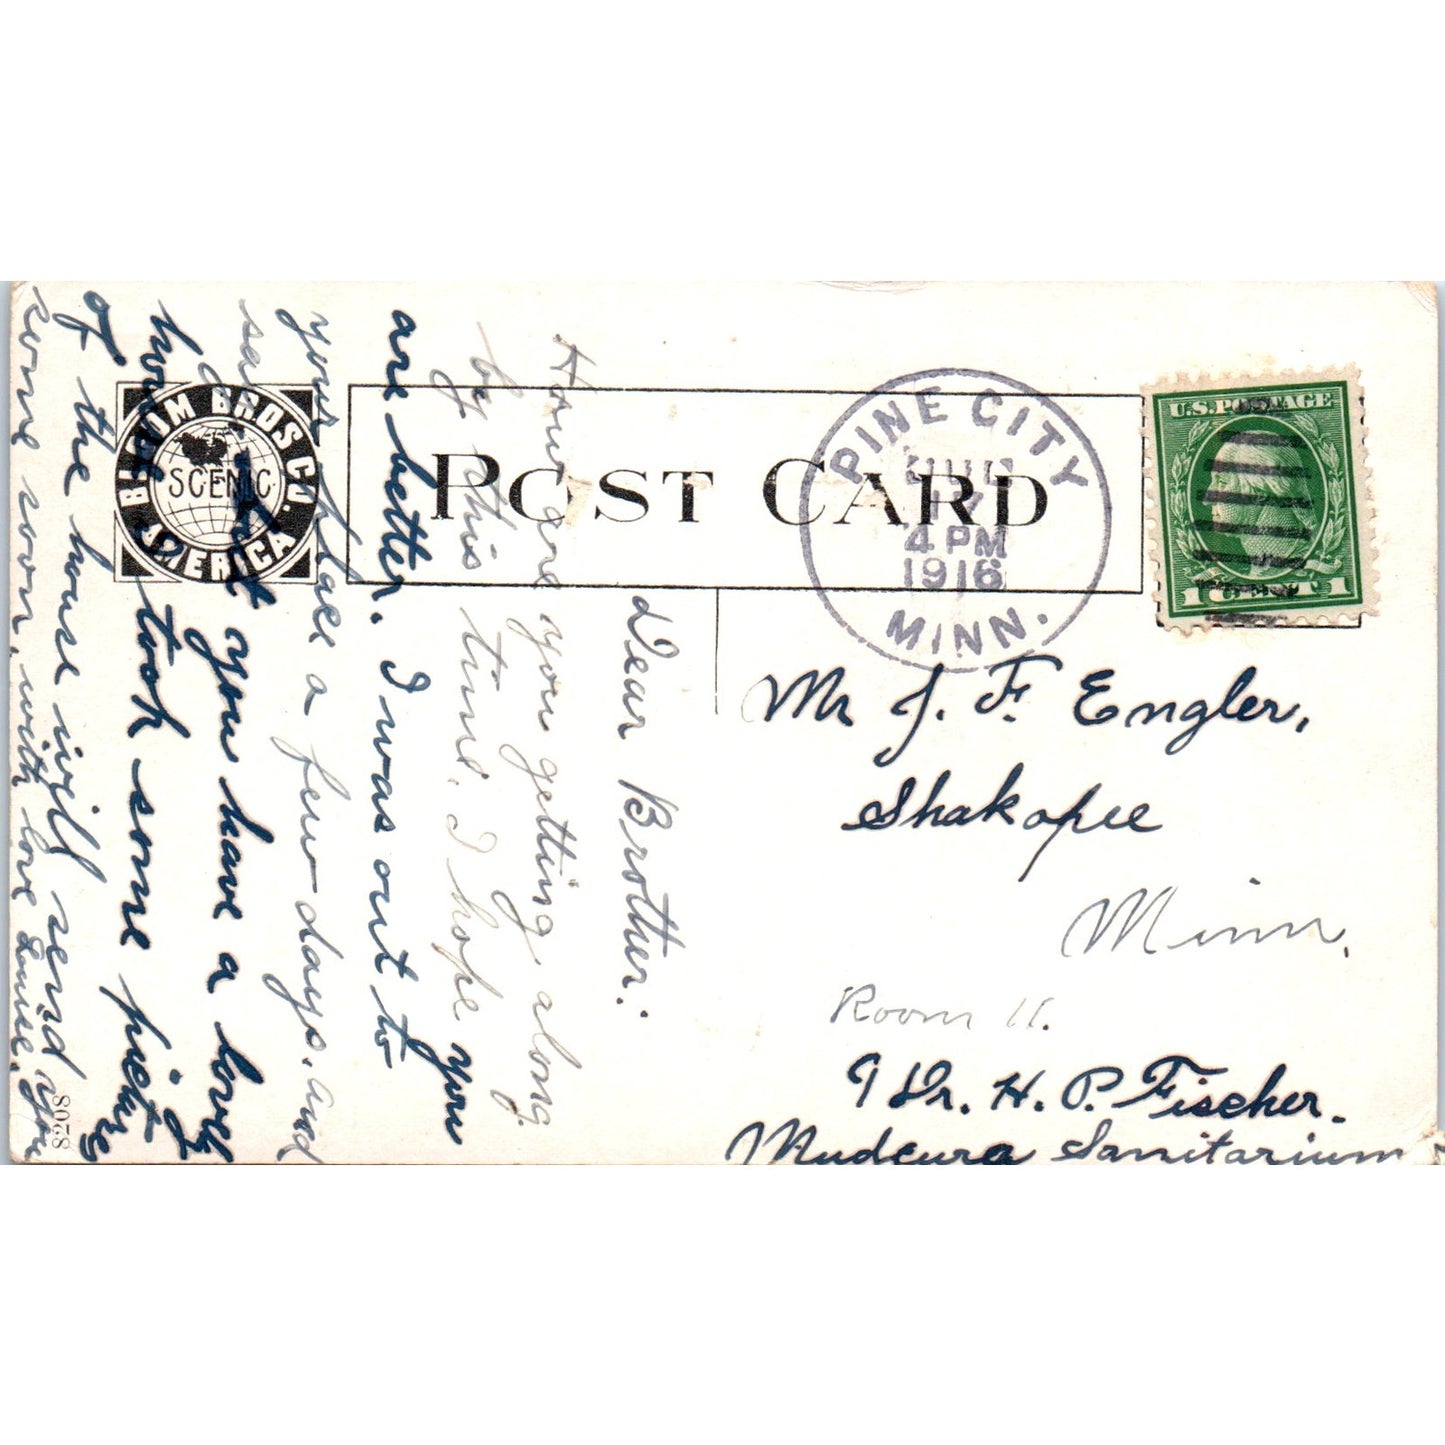 BLOOM BROS CO.
SCENIC
AMERICA
POST CARD
PINE CITY
JUL
17
4 PM
1916
MINN.
U.S. POSTAGE
1 CENT 1
Dear Brother:
How are you getting along
by this time, I hope you
are better. I was out to
your place a few days, and
say but you have a lovely
house took some picture
of the house will send you
some soon, with love Louise,
8208
Mr J. F. Engler,
Shakopee
Minn.
Room 11.
% Dr. H. P. Fischer.
Mudcura Sanitarium